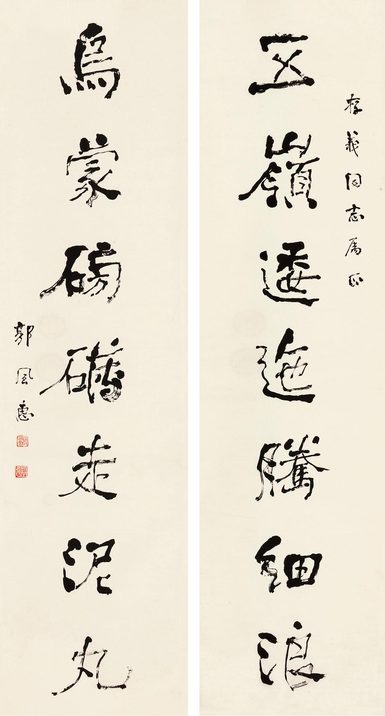 存義同志属正
五嶺逶迤騰細浪
烏蒙磅礴走泥丸
郭風惠